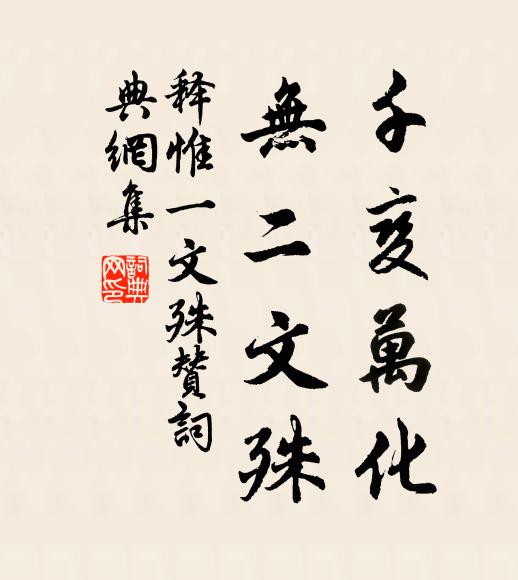 千变萬化
無二文殊
释惟一文殊賛詞
典網集
詞典
网印